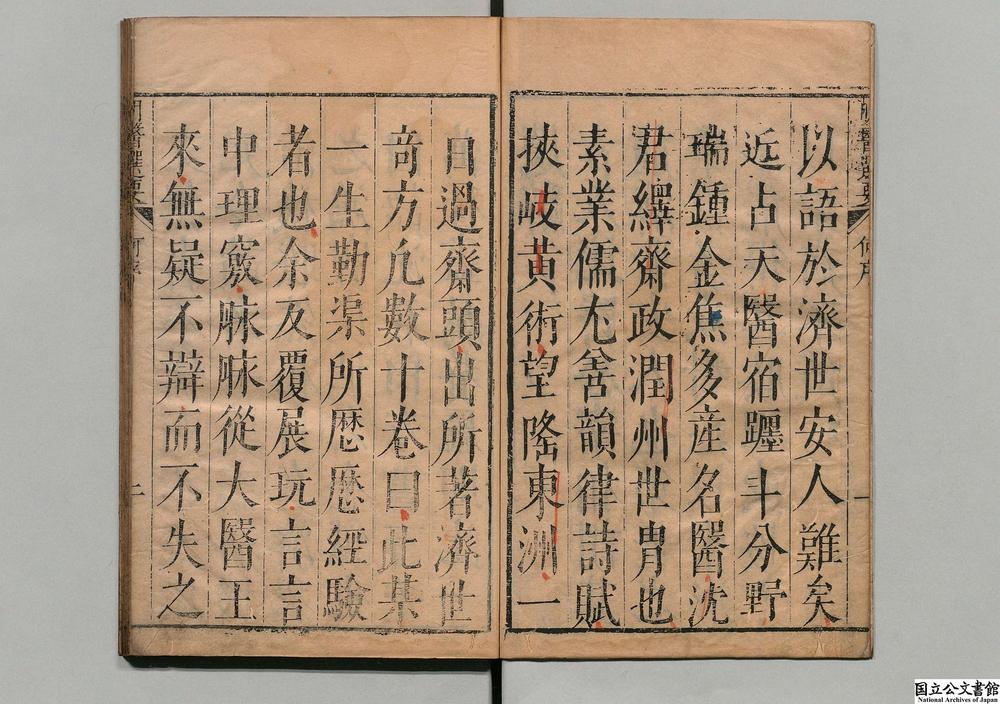 以語於濟世安人難矣
近占天醫宿躔斗分野
瑞鍾金焦多産名醫沈
君繹齋政潤州世胄也
素業儒尤善韻律詩賦
挾岐黃術望隆東洲一
日過齋頭出所著濟世
竒方凡數十卷曰此某
一生勤渠所歴歴經驗
者也余反覆展玩言言
中理窽脉脉從大醫王
來無疑不辯而不失之
一
國立公文書館
National Archives of Japan